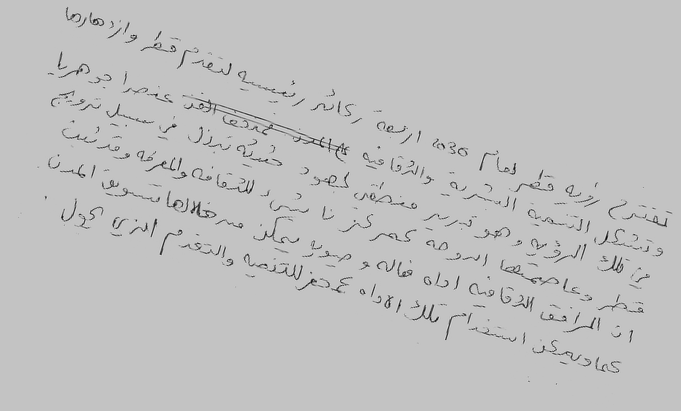 تقترح رؤيه قطر لعام 2030 اربعة ركائز رئيسيه لتقدم قطر وازدهارها
وتشكل التنمية البشرية والثقافيه عنصرا جوهريا
من تلك الرؤيه وهو تبرير منطقى لجهود حثيثه تبذل في سبيل ترويج
قطر وعاصمتها الدوحه كمركز ناشىء للثقافه والمعرفه وقد ثبت
ان المرافق الثقافيه اداه فعاله وحيويه يمكن من خلالها تسويق المدن
كما ويمكن استخدام تلك الاداه كمحفز للتنميه والتقدم الذي يحول .